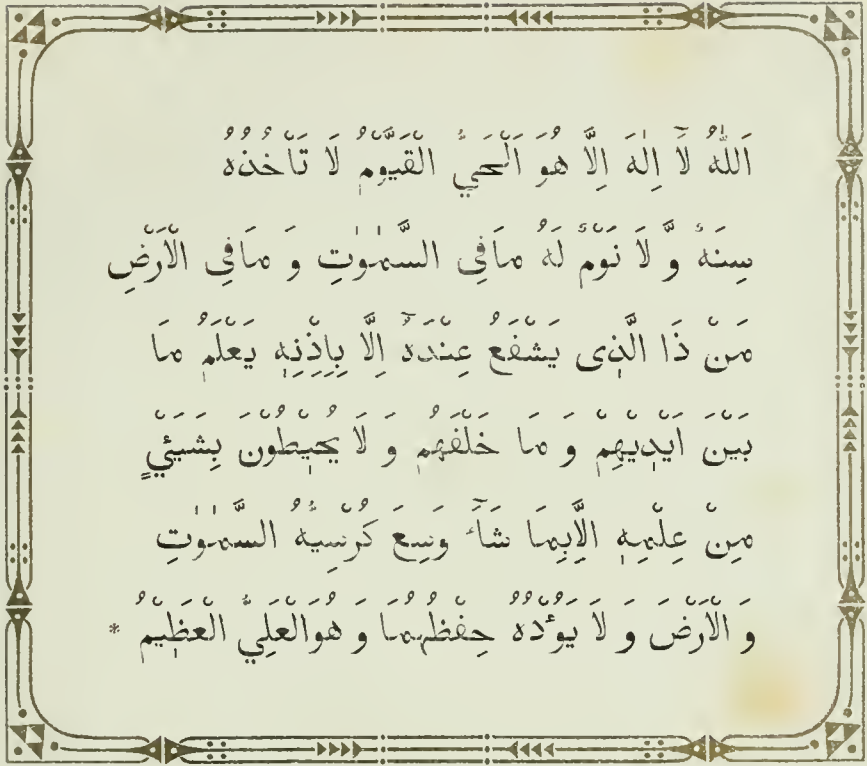 اَللّٰهُ لَآ اِلٰهَ اِلَّا هُوَ اَلْحَيُّ الْقَيَّوْمُ لَا تَاْخُذُهُ
سِنَهٌ وَّ لَا نَوْمٌ لَهُ مَافِى السَّمٰوٰتِ وَ مَافِى الْاَرْضِ
مَنْ ذَا الَّذِى يَشْفَعُ عِنْدَهٗٓ اِلَّا بِاِذْنِهٖ يَعْلَمُ مَا
بَيْنَ اَيْدِيْهِمْ وَ مَا خَلْفَهُمْ وَ لَا يُحِيْطُوْنَ بِشَيْئٍ
مِنْ عِلْمِهٖ اِلَّابِمَا شَآءَ وَسِعَ كُرْسِيُّهُ السَّمٰوٰتِ
وَ الْاَرْضَ وَ لَا يَؤُدُهٗ حِفْظُهُمَا وَ هُوَالْعَلِيُّ الْعَظِيْمُ *